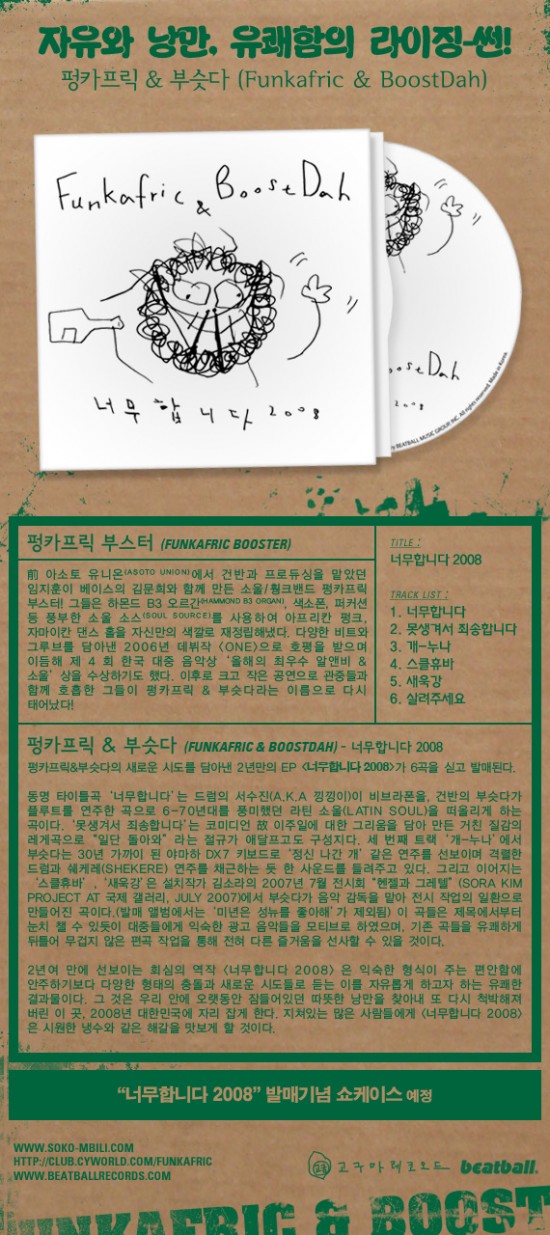 자유와 낭만, 유쾌함의 라이징-썬!
펑카프릭 & 부슷다 (Funkafric & BoostDah)
Funkafric & BoostDah
너무합니다 2008
oostDah
2008
BEATBALL MUSIC GROUP INC. All rights reserved. Made in Korea
펑카프릭 부스터 (FUNKAFRIC BOOSTER)
前 아소토 유니온(ASOTO UNION)에서 건반과 프로듀싱을 맡았던
임지훈이 베이스의 김문희와 함께 만든 소울/훵크밴드 펑카프릭
부스터! 그들은 하몬드 B3 오르간(HAMMOND B3 ORGAN), 색소폰, 퍼커션
등 풍부한 소울 소스(SOUL SOURCE)를 사용하여 아프리칸 펑크,
자마이칸 댄스 홀을 자신만의 색깔로 재정립해냈다. 다양한 비트와
그루브를 담아낸 2006년 데뷔작 <ONE>으로 호평을 받으며
이듬해 제 4 회 한국 대중 음악상 '올해의 최우수 알앤비 &
소울' 상을 수상하기도 했다. 이후로 크고 작은 공연으로 관중들과
함께 호흡한 그들이 펑카프릭 & 부슷다라는 이름으로 다시
태어났다!
TITLE :
너무합니다 2008
TRACK LIST :
1. 너무합니다
2. 못생겨서 죄송합니다
3. 개-누나
4. 스클휴바
5. 새욱강
6. 살려주세요
펑카프릭 & 부슷다 (FUNKAFRIC & BOOSTDAH) - 너무합니다 2008
펑카프릭&부슷다의 새로운 시도를 담아낸 2년만의 EP <너무합니다 2008>가 6곡을 싣고 발매된다.
동명 타이틀곡 '너무합니다'는 드럼의 서수진(A.K.A 낑낑이)이 비브라폰을, 건반의 부슷다가
플루트를 연주한 곡으로 6-70년대를 풍미했던 라틴 소울(LATIN SOUL)을 떠올리게 하는
곡이다. '못생겨서 죄송합니다'는 코미디언 故 이주일에 대한 그리움을 담아 만든 거친 질감의
레게곡으로 "일단 돌아와" 라는 절규가 애달프고도 구성지다. 세 번째 트랙 '개-누나'에서
부슷다는 30년 가까이 된 야마하 DX7 키보드로 '정신 나간 개' 같은 연주를 선보이며 격렬한
드럼과 쉐케레(SHEKERE) 연주를 채근하는 듯 한 사운드를 들려주고 있다. 그리고 이어지는
'스클휴바', '새욱강'은 설치작가 김소라의 2007년 7월 전시회 "헨젤과 그레텔" (SORA KIM
PROJECT AT 국제 갤러리, JULY 2007)에서 부슷다가 음악 감독을 맡아 전시 작업의 일환으로
만들어진 곡이다.(발매 앨범에서는 '미년은 성뉴를 좋아해'가 제외됨) 이 곡들은 제목에서부터
눈치 챌 수 있듯이 대중들에게 익숙한 광고 음악들을 모티브로 하였으며, 기존 곡들을 유쾌하게
뒤틀어 무겁지 않은 편곡 작업을 통해 전혀 다른 즐거움을 선사할 수 있을 것이다.
2년여 만에 선보이는 회심의 역작 <너무합니다 2008> 은 익숙한 형식이 주는 편안함에
안주하기보다 다양한 형태의 충돌과 새로운 시도들로 듣는 이를 자유롭게 하고자 하는 유쾌한
결과물이다. 그 것은 우리 안에 오랫동안 잠들어있던 따뜻한 낭만을 찾아내 또 다시 척박해져
버린 이 곳, 2008년 대한민국에 자리 잡게 한다. 지쳐있는 많은 사람들에게 <너무합니다 2008>
은 시원한 냉수와 같은 해갈을 맛보게 할 것이다.
"너무합니다 2008" 발매기념 쇼케이스 예정
WWW.SOKO-MBILI.COM
HTTP://CLUB.CYWORLD.COM/FUNKAFRIC
WWW.BEATBALLRECORDS.COM
고구마레코드 beatball.
UNKAFRIC & BOOST